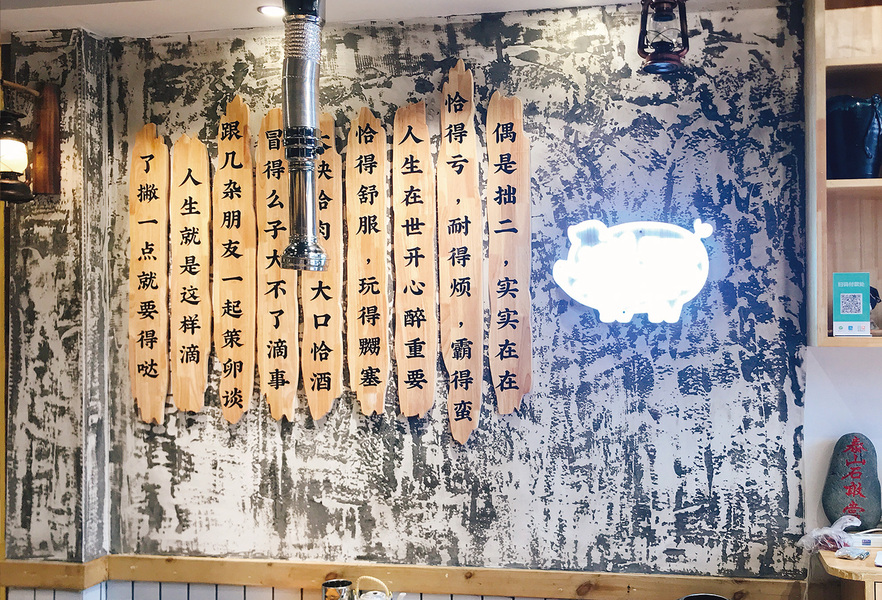 偶是拙二，实实在在
恰得亏，耐得烦，霸得蛮
人生在世开心醉重要
恰得舒服，玩得嬲塞
块恰肉 大口恰酒
冒得么子大不了滴事
跟几杂朋友一起策卯谈
人生就是这样滴
了撇一点就要得哒
泰山石敢當